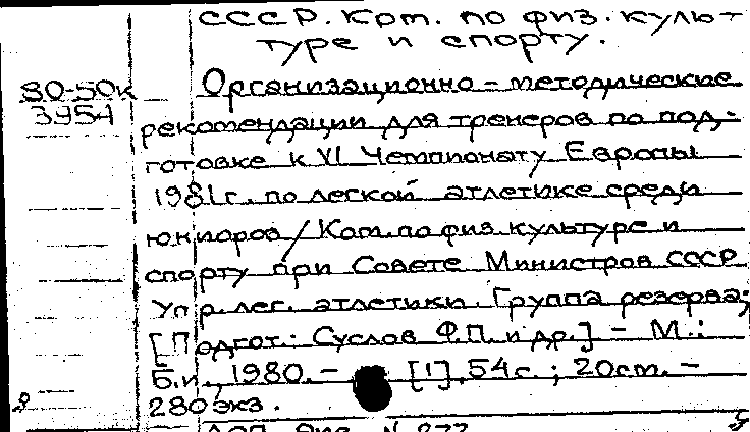 СССР. Ком. по физ. культ-
туре и спорту.
80-50к
3954
Организационно-методические
рекомендации для тренеров по под-
готовке к VI Чемпионату Европы
1981г. по легкой атлетике среди
юниоров / Ком. по физ. культуре и
спорту при Совете Министров СССР
Упр. лег. атлетики. Группа резерва;
[Подгот.: Суслов Ф.П. и др.] - М.:
Б.и., 1980. - [1], 54 с.; 20 см. -
280 экз.